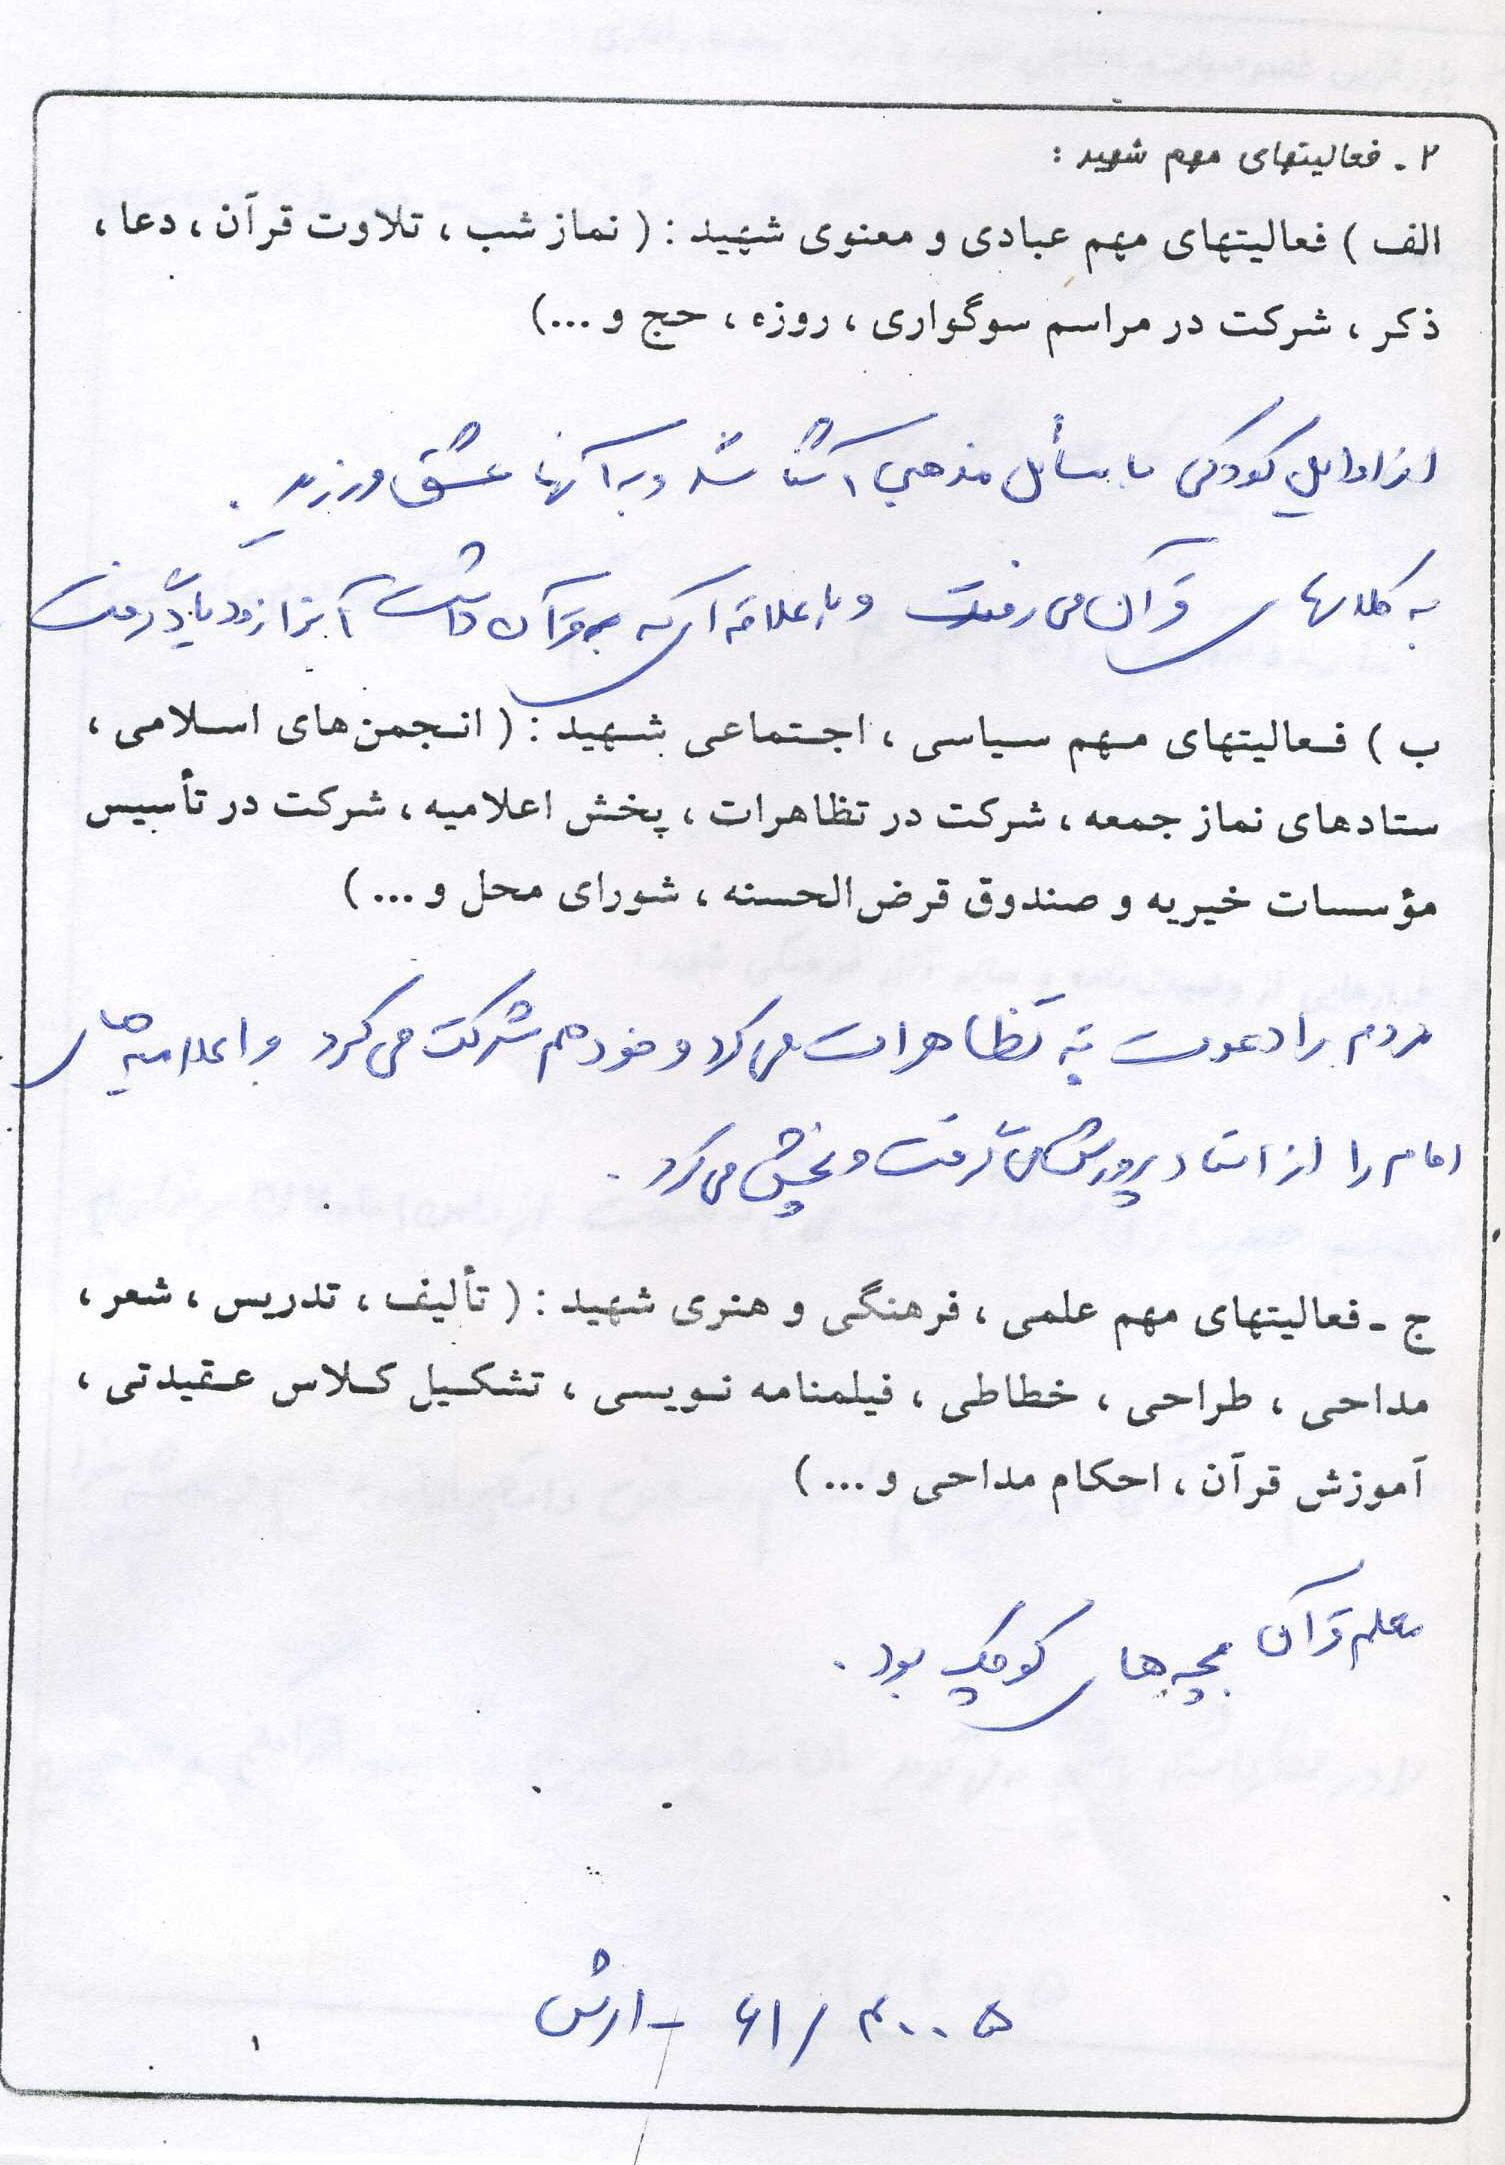 ۲ ـ فعالیتهای مهم شهید :
الف ) فعالیتهای مهم عبادی و معنوی شهید : ( نماز شب ، تلاوت قرآن ، دعا ،
ذکر ، شرکت در مراسم سوگواری ، روزه ، حج و ...)
از اوایل کودکی با مسائل مذهبی آشنا شد و به آنها عشق ورزید .
به کلاسهای قرآن می رفت و با علاقه ای که به قرآن داشت آنرا زود یاد گرفت
ب ) فعالیتهای مهم سیاسی ، اجتماعی شهید : ( انجمن‌های اسلامی ،
ستادهای نماز جمعه ، شرکت در تظاهرات ، پخش اعلامیه ، شرکت در تأسیس
مؤسسات خیریه و صندوق قرض‌الحسنه ، شورای محل و ... )
مردم را دعوت به تظاهرات می کرد و خود هم شرکت می کرد و اعلامیه های
امام را از استاد پرورش می گرفت و پخش می کرد .
ج ـ فعالیتهای مهم علمی ، فرهنگی و هنری شهید : ( تألیف ، تدریس ، شعر ،
مداحی ، طراحی ، خطاطی ، فیلمنامه نویسی ، تشکیل کلاس عقیدتی ،
آموزش قرآن ، احکام مداحی و ... )
معلم قرآن بچه های کوچک بود .
۶۱/۴۰۰۵ - ارتش
۱